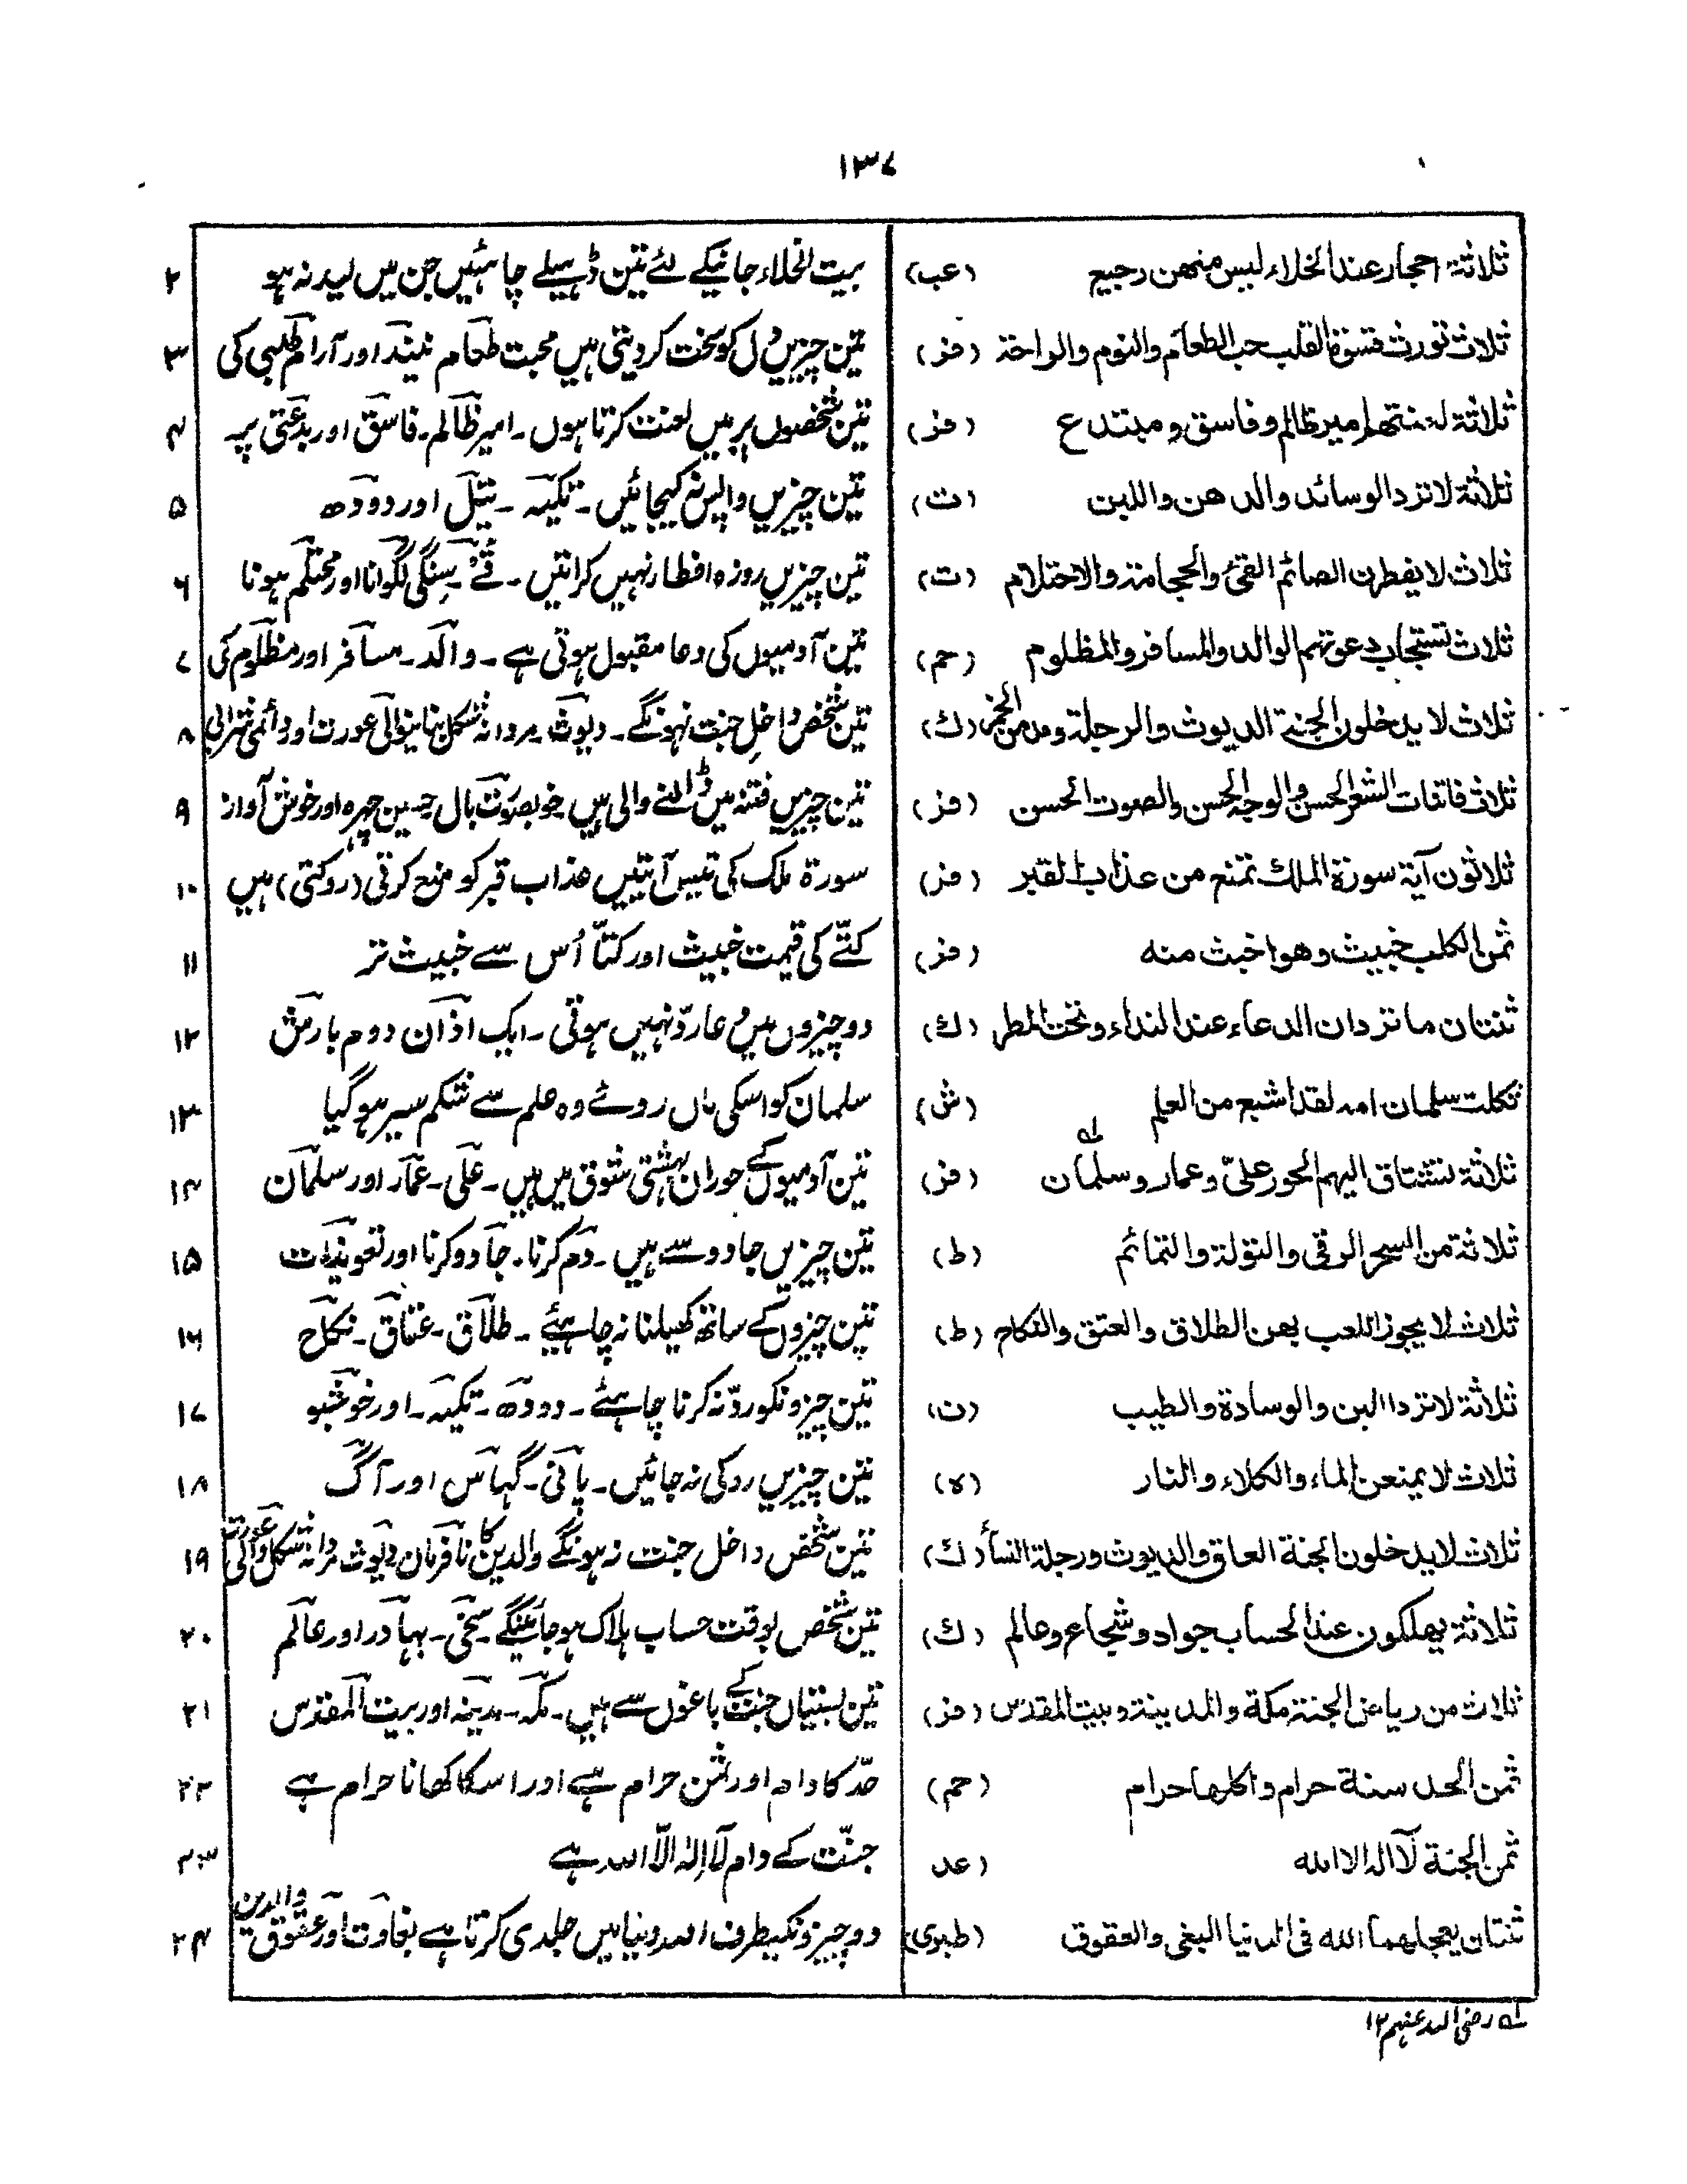 ۱۳۷
ثلاثة احجار عند الخلاء ليس منهن رجيع (عب) بیت الخلاء جانیکے لئے تین ڈہیلے چاہئیں جن میں لید نہ ہو ۲
ثلاث تورث قسوة القلب حب الطعام والنوم والراحة (فز) تین چیزیں دل کو سخت کر دیتی ہیں محبت طعام نیند اور آرام طلبی کی ۳
ثلاثة لعنتهم امير ظالم وفاسق ومبتدع (فز) تین شخصوں پر میں لعنت کرتا ہوں۔ امیر ظالم۔ فاسق اور بدعتی پر ۴
ثلاثة لا ترد الوسائد والدهن واللبن (ت) تین چیزیں واپس نہ کیجائیں۔ تکیہ۔ تیل اور دودھ ۵
ثلاث لا يفطرن الصائم القئ والحجامة والاحتلام (ت) تین چیزیں روزہ افطار نہیں کراتیں۔ قے۔ سنگی لگوانا اور محتلم ہونا ۶
ثلاث تستجاب دعوتهم الوالد والمسافر والمظلوم (حم) تین آدمیوں کی دعا مقبول ہوتی ہے۔ والد۔ مسافر اور مظلوم کی ۷
ثلاث لا يدخلون الجنة الديوث والرجلة ومدمن الخمر (ك) تین شخص داخل جنت نہونگے۔ دیوث۔ مردانہ شکل بنانیوالی عورت اور دائمی شرابی ۸
ثلاث فاتنات الشعر الحسن والوجه الحسن والصوت الحسن (فز) تین چیزیں فتنہ میں ڈالنے والی ہیں خوبصورت بال حسین چہرہ اور خوش آواز ۹
ثلاثون آية سورة الملك تمنع من عذاب القبر (فز) سورۃ ملک کی تیس آیتیں عذاب قبر کو منع کرتی (روکتی) ہیں ۱۰
ثمن الكلب خبيث وهو اخبث منه (فز) کتّے کی قیمت خبیث اور کتّا اُس سے خبیث تر ۱۱
ثنتان ما تردان الدعاء عند النداء وتحت المطر (ك) دو چیزوں میں دعا ردّ نہیں ہوتی۔ ایک اذان دوم بارش ۱۲
ثكلت سلمان امه لقد اشبع من العلم (ش) سلمان کو اسکی ماں روئے وہ علم سے شکم سیر ہو گیا ۱۳
ثلاثة تشتاق اليهم الحور علیّ وعمار وسلمان لہ (فز) تین آدمیوں کے حوران بہشتی شوق میں ہیں۔ علی۔ عمار اور سلمان ۱۴
ثلاثة من السحر الرقى والتولة والتمائم (ط) تین چیزیں جادو سے ہیں۔ دم کرنا۔ جادو کرنا اور تعویذات ۱۵
ثلاث لا يجوز اللعب بهن الطلاق والعتق والنكاح (ط) تین چیزوں کے ساتھ کھیلنا نہ چاہیئے۔ طلاق۔ عتاق۔ نکاح ۱۶
ثلاثة لا ترد اللبن والوسادة والطيب (ن) تین چیزونکو ردّ نہ کرنا چاہئے۔ دودھ۔ تکیہ۔ اور خوشبو ۱۷
ثلاث لا يمنعن الماء والكلاء والنار (ه) تین چیزیں روکی نہ جائیں۔ پانی۔ گہاس اور آگ ۱۸
ثلاث لا يدخلون الجنة العاق والديوث ورجلة النسأ (ك) تین شخص داخل جنت نہ ہونگے والدین کا نافرمان دیوث مردانہ شکل والی عورت ۱۹
ثلاثة يهلكون عند الحساب جواد وشجاع وعالم (ك) تین شخص بوقت حساب ہلاک ہو جائینگے سخی۔ بہادر اور عالم ۲۰
ثلاث من رياض الجنة مكة والمدينة وبيت المقدس (فز) تین بستیاں جنت کے باغوں سے ہیں۔ مکہ۔ مدینہ اور بیت المقدس ۲۱
ثمن الحد سنة حرام واكلها حرام (حم) حد کا دام اور ثمن حرام ہے اور اسکا کھانا حرام ہے ۲۲
ثمن الجنة لآ اله الا الله (عد) جنّت کے دام لآ اِلٰہ الّا اللہ ہے ۲۳
ثنتان يعجلهما الله فی الدنيا البغی والعقوق (طبوی) دو چیزونکیطرف اللہ دنیا میں جلدی کرتا ہے بغاوت اور عقوق والدین ۲۴
لہ رضی اللہ عنہم ۱۲